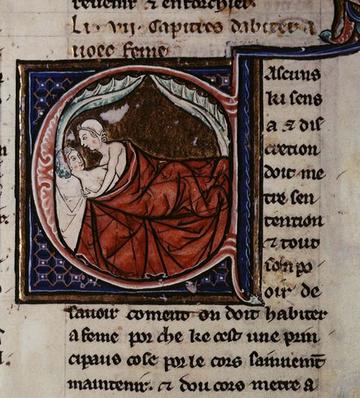 retenir ⁊ enforchier.
Li .vii. capitres dabiter a
uoec feme
Cascuns
ki sens
a ⁊ dis
cretion
doit me
tre sen
tention
⁊ tout
son po
oir de
sauoir coment on doit habiter
a feme por che ke cest une prin
cipaus cose por le cors sainement
maintenir. ⁊ dou cors metre a